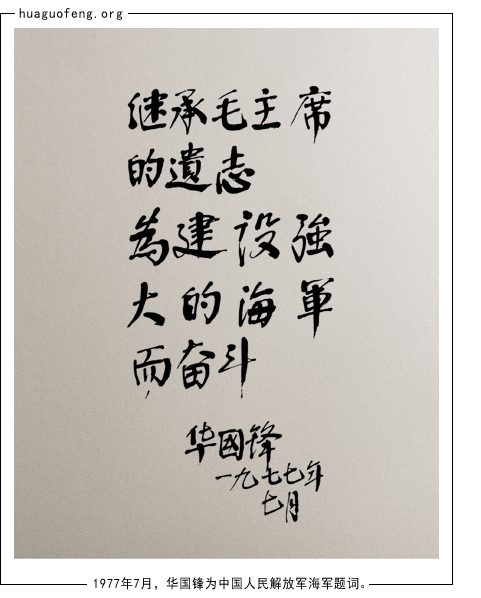 huaguofeng.org
继承毛主席
的遺志
為建设強
大的海軍
而奋斗
华國锋
一九七七年
七月
1977年7月，华国锋为中国人民解放军海军题词。